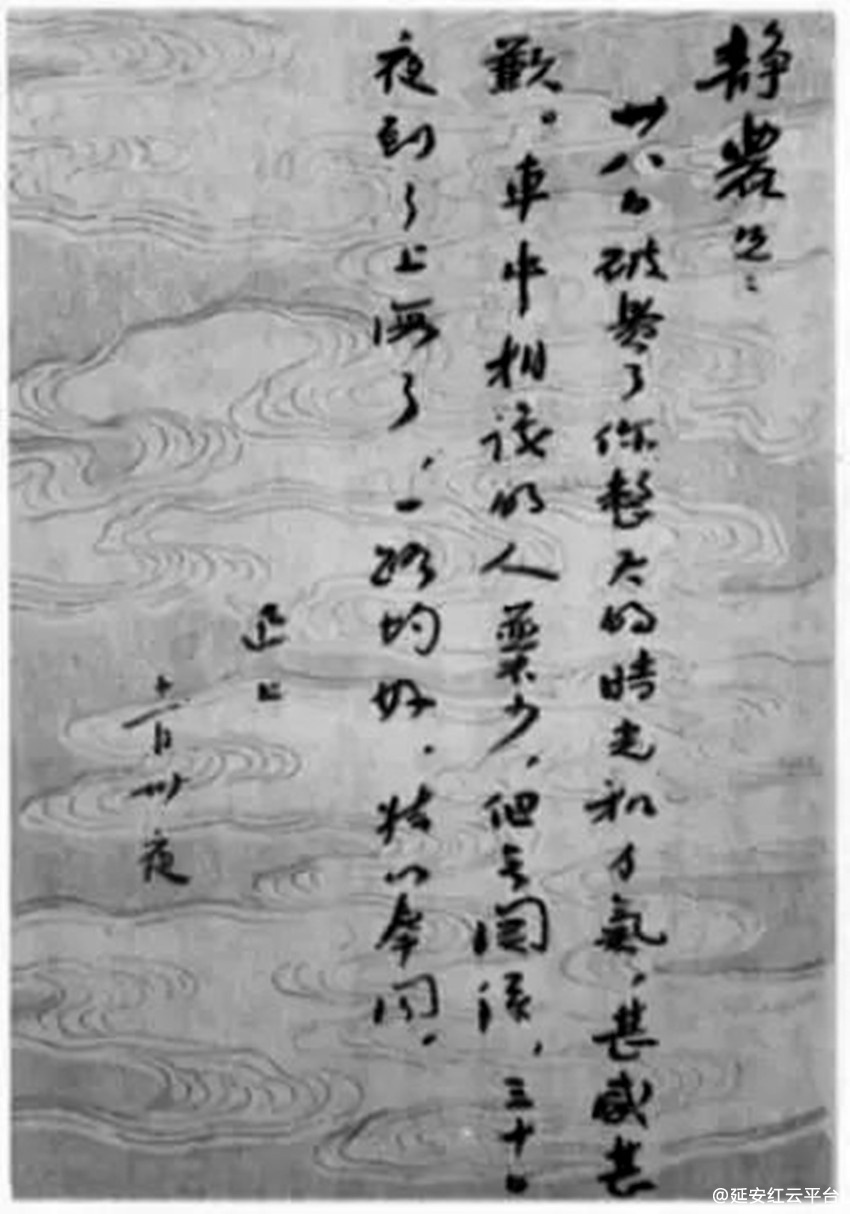 静農兄：
廿八日破費了你整天的時光和力氣，甚感甚
歉。車中相識的人並不少，但无関係，三十日
夜到了上海了，一路均好，特以奉聞。
迅上
十一月卅夜
@延安红云平台